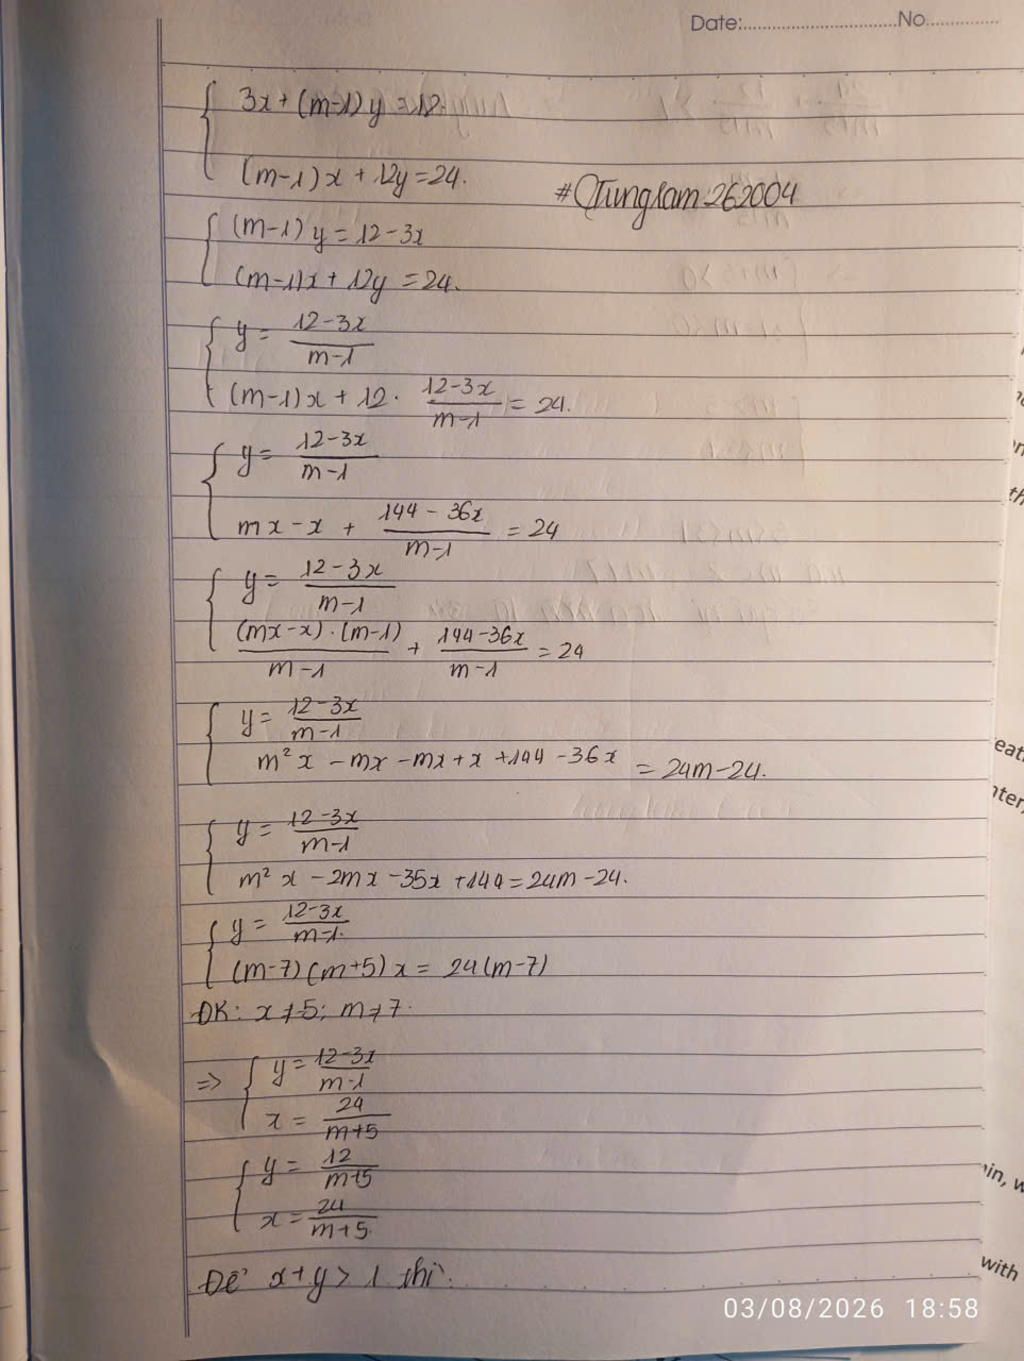 Date:..............................No..............
{ 3x + (m-1) y = 12
(m-1)x + 12y = 24.
#QTunglam262004
{ (m-1) y = 12-3x
(m-1)x + 12y = 24.
{ y = \frac{12-3x}{m-1}
(m-1)x + 12 . \frac{12-3x}{m-1} = 24.
{ y = \frac{12-3x}{m-1}
mx - x + \frac{144-36x}{m-1} = 24
{ y = \frac{12-3x}{m-1}
\frac{(mx-x).(m-1)}{m-1} + \frac{144-36x}{m-1} = 24
{ y = \frac{12-3x}{m-1}
m² x - mx - mx + x + 144 - 36x = 24m - 24.
{ y = \frac{12-3x}{m-1}
m² x - 2mx - 35x + 144 = 24m - 24.
{ y = \frac{12-3x}{m-1}.
(m-7)(m+5) x = 24(m-7)
ĐK: x ≠ -5; m ≠ 7.
=> { y = \frac{12-3x}{m-1}
x = \frac{24}{m+5}
{ y = \frac{12}{m+5}
x = \frac{24}{m+5}.
Để x + y > 1 thì:
eat
nter,
in, w
with
03/08/2026 18:58